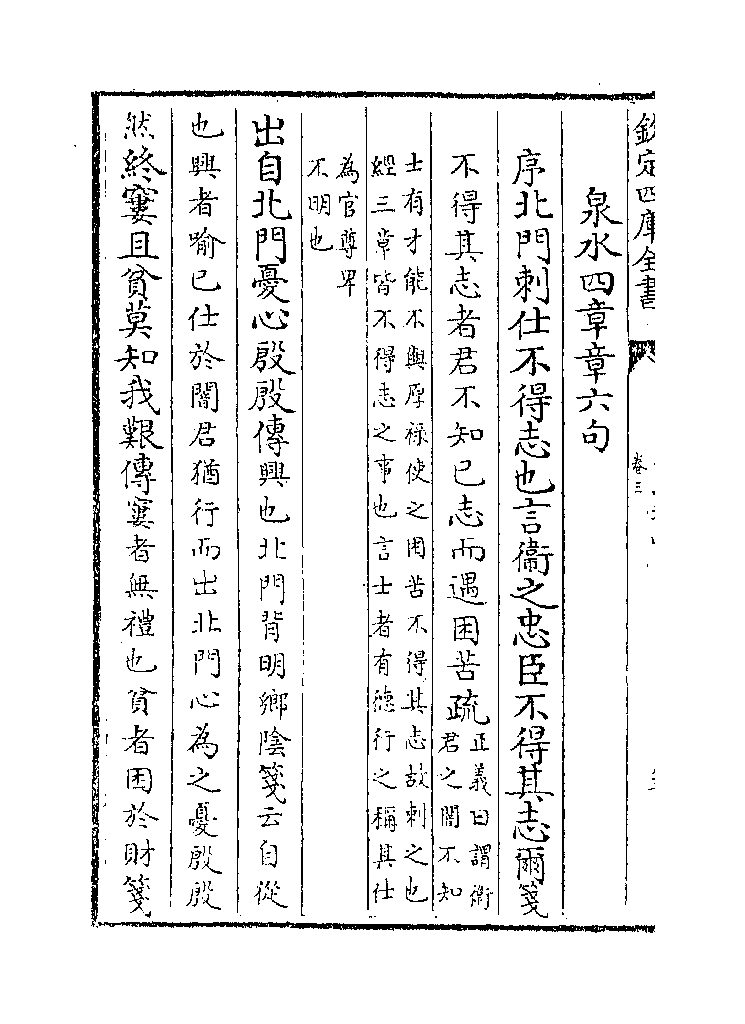 欽定四庫全書
卷三
泉水四章章六句
序北門刺仕不得志也言衞之忠臣不得其志爾箋
不得其志者君不知已志而遇困苦疏
正義曰謂衞
君之闇不知
士有才能不與厚祿使之困苦不得其志故刺之也
經三常皆不得志之事也言士者有德行之稱其仕
為官尊卑
不明也
出自北門憂心殷殷傳興也北門背明鄉陰箋云自從
也興者喻已仕於闇君猶行而出北門心為之憂殷殷
然終窶且貧莫知我艱傳窶者無禮也貧者困於財箋